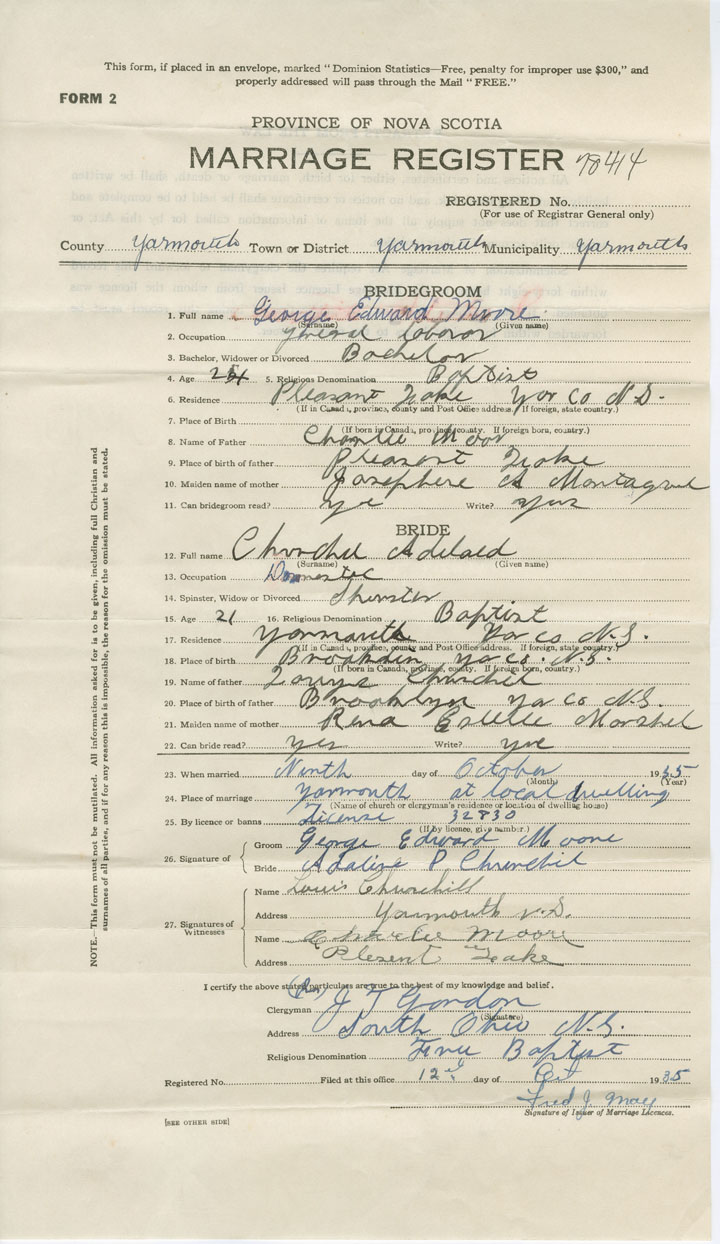 This form, if placed in an envelope, marked "Dominion Statistics—Free, penalty for improper use $300," and
properly addressed will pass through the Mail "FREE."
FORM 2
PROVINCE OF NOVA SCOTIA
MARRIAGE REGISTER
REGISTERED No.
(For use of Registrar General only)
County Yarmouth Town or District Yarmouth Municipality Yarmouth
BRIDEGROOM
1. Full name George Edward Moore
(Surname) (Given name)
2. Occupation General Laboror
3. Bachelor, Widower or Divorced Bachelor
4. Age 5. Religious Denomination Baptist
6. Residence Pleasant Lake Yar Co N.S.
(If in Canada, province, county and Post Office address. If foreign, state country.)
7. Place of Birth
(If born in Canada, province, county. If foreign born, country.)
8. Name of Father Charlie Moor
9. Place of birth of father Pleasant Lake
10. Maiden name of mother Josephere A
11. Can bridegroom read? Write?
BRIDE
12. Full name Churchel Adelaid
(Surname) (Given name)
13. Occupation Domestec
14. Spinster, Widow or Divorced Spinster
15. Age 21 16. Religious Denomination Baptist
17. Residence Yarmouth Yar co N.S.
(If in Canada, province, county and Post Office address. If foreign, state country.)
18. Place of birth Yar co. N.S.
(If born in Canada, province, county. If foreign born, country.)
19. Name of father Churchel
20. Place of birth of father Brooklyn Yar Co N.S.
21. Maiden name of mother Rena Estelle Marshel
22. Can bride read? yes Write?
23. When married Ninth day of October 1935
(Month) (Year)
24. Place of marriage Yarmouth at local dwelling
(Name of church or clergyman's residence or location of dwelling house)
25. By licence or banns License 32830
(If by licence, give number.)
26. Signature of
Groom George Edward Moore
Bride Adaline P Churchil
27. Signatures of Witnesses
Name Louis Churchill
Address Yarmouth N.S.
Name Charlie Moore
Address Plesent Lake
I certify the above stated particulars are true to the best of my knowledge and belief.
Clergyman (Rev) J T Gordon
(Signature)
Address South Ohio N.S.
Religious Denomination Baptist
Registered No. Filed at this office 12 day of Oct 1935
Fred J.
Signature of Issuer of Marriage Licences.
[SEE OTHER SIDE]
NOTE.—This form must not be mutilated. All information asked for is to be given, including full Christian and
surnames of all parties, and if for any reason this is impossible, the reason for the omission must be stated.